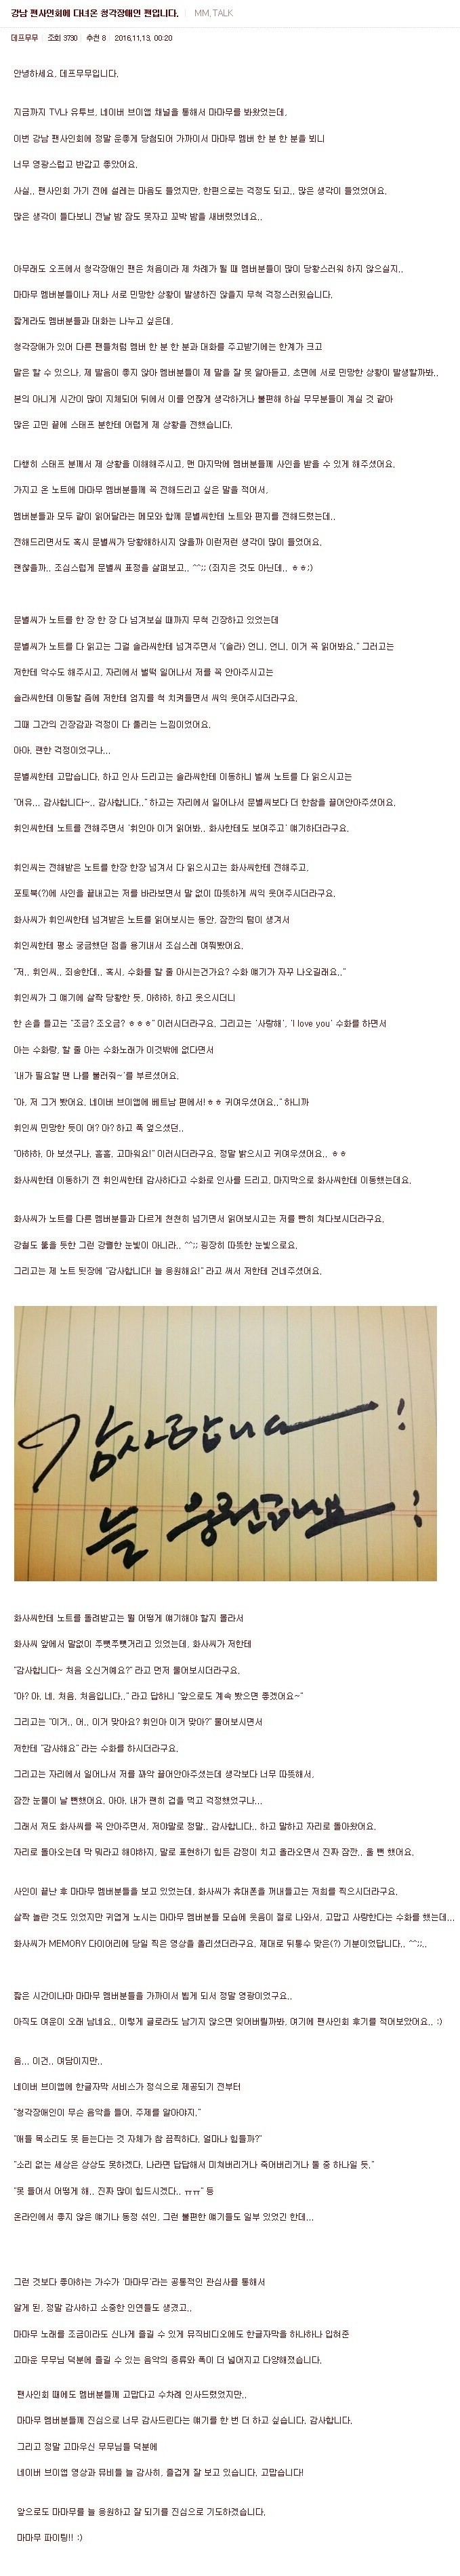 강남 팬사인회에 다녀온 청각장애인 팬입니다. | MM,TALK
데프무무 | 조회 3730 | 추천 8 | 2016,11,13, 00:20
안녕하세요, 데프무무입니다,
지금까지 TV나 유투브, 네이버 브이앱 채널을 통해서 마마무를 봐왔었는데,
이번 강남 팬사인회에 정말 운좋게 당첨되어 가까이서 마마무 멤버 한 분 한 분을 뵈니
너무 영광스럽고 반갑고 좋았어요,
사실,, 팬사인회 가기 전에 설레는 마음도 들었지만, 한편으로는 걱정도 되고,, 많은 생각이 들었었어요,
많은 생각이 들다보니 전날 밤 잠도 못자고 꼬박 밤을 새버렸었네요,,
아무래도 오프에서 청각장애인 팬은 처음이라 제 차례가 될 때 멤버분들이 많이 당황스러워 하지 않으실지,,
마마무 멤버분들이나 저나 서로 민망한 상황이 발생하진 않을지 무척 걱정스러웠습니다,
짧게라도 멤버분들과 대화는 나누고 싶은데,
청각장애가 있어 다른 팬들처럼 멤버 한 분 한 분과 대화를 주고받기에는 한계가 크고
말은 할 수 있으나, 제 발음이 좋지 않아 멤버분들이 제 말을 잘 못 알아듣고, 초면에 서로 민망한 상황이 발생할까봐,,
본의 아니게 시간이 많이 지체되어 뒤에서 이를 언짢게 생각하거나 불편해 하실 무무분들이 계실 것 같아
많은 고민 끝에 스태프 분한테 어렵게 제 상황을 전했습니다,
다행히 스태프 분께서 제 상황을 이해해주시고, 맨 마지막에 멤버분들께 사인을 받을 수 있게 해주셨어요,
가지고 온 노트에 마마무 멤버분들께 꼭 전해드리고 싶은 말을 적어서,
멤버분들과 모두 같이 읽어달라는 메모와 함께 문별씨한테 노트와 편지를 전해드렸는데,,
전해드리면서도 혹시 문별씨가 당황해하시지 않을까 이런저런 생각이 많이 들었어요,
괜찮을까,, 조심스럽게 문별씨 표정을 살펴보고,, ^^;; (죄지은 것도 아닌데,, ㅎㅎ;)
문별씨가 노트를 한 장 한 장 다 넘겨보실 때까지 무척 긴장하고 있었는데
문별씨가 노트를 다 읽고는 그걸 솔라씨한테 넘겨주면서 "(솔라) 언니, 언니, 이거 꼭 읽어봐요," 그러고는
저한테 악수도 해주시고, 자리에서 벌떡 일어나서 저를 꼭 안아주시고는
솔라씨한테 이동할 즘에 저한테 엄지를 척 치켜들면서 씨익 웃어주시더라구요,
그때 그간의 긴장감과 걱정이 다 풀리는 느낌이었어요,
아아, 괜한 걱정이었구나,,,
문별씨한테 고맙습니다, 하고 인사 드리고는 솔라씨한테 이동하니 벌써 노트를 다 읽으시고는
"어유,,, 감사합니다~,, 감사합니다,," 하고는 자리에서 일어나서 문별씨보다 더 한참을 끌어안아주셨어요,
휘인씨한테 노트를 전해주면서 '휘인아 이거 읽어봐,, 화사한테도 보여주고' 얘기하더라구요,
휘인씨는 전해받은 노트를 한장 한장 넘겨서 다 읽으시고는 화사씨한테 전해주고,
포토북(?)에 사인을 끝내고는 저를 바라보면서 말 없이 따뜻하게 씨익 웃어주시더라구요,
화사씨가 휘인씨한테 넘겨받은 노트를 읽어보시는 동안, 잠깐의 텀이 생겨서
휘인씨한테 평소 궁금했던 점을 용기내서 조심스레 여쭤봤어요,
"저,, 휘인씨,, 죄송한데,, 혹시, 수화를 할 줄 아시는건가요? 수화 얘기가 자꾸 나오길래요,,"
휘인씨가 그 얘기에 살짝 당황한 듯, 아하하, 하고 웃으시더니
한 손을 들고는 "조금? 조오금? ㅎㅎㅎ" 이러시더라구요, 그리고는 '사랑해', 'I love you' 수화를 하면서
아는 수화랑, 할 줄 아는 수화노래가 이것밖에 없다면서
'내가 필요할 땐 나를 불러줘~'를 부르셨어요,
"아, 저 그거 봤어요, 네이버 브이앱에 베트남 편에서!ㅎㅎ 귀여우셨어요,," 하니까
휘인씨 민망한 듯이 어? 아? 하고 푹 엎으셨던,,
"아하하, 아 보셨구나, 흠흠, 고마워요!" 이러시더라구요, 정말 밝으시고 귀여우셨어요,, ㅎㅎ
화사씨한테 이동하기 전 휘인씨한테 감사하다고 수화로 인사를 드리고, 마지막으로 화사씨한테 이동했는데요,
화사씨가 노트를 다른 멤버분들과 다르게 천천히 넘기면서 읽어보시고는 저를 빤히 쳐다보시더라구요,
강철도 뚫을 듯한 그런 강렬한 눈빛이 아니라,, ^^;; 굉장히 따뜻한 눈빛으로요,
그리고는 제 노트 뒷장에 "감사합니다! 늘 응원해요!" 라고 써서 저한테 건네주셨어요,
감사합니다!
늘 응원해요!
화사씨한테 노트를 돌려받고는 뭘 어떻게 얘기해야 할지 몰라서
화사씨 앞에서 말없이 주뼛주뼛거리고 있었는데, 화사씨가 저한테
"감사합니다~ 처음 오신거예요?" 라고 먼저 물어보시더라구요,
"아? 아, 네, 처음, 처음입니다,," 라고 답하니 "앞으로도 계속 봤으면 좋겠어요~"
그리고는 "이거,, 어,, 이거 맞아요? 휘인아 이거 맞아?" 물어보시면서
저한테 "감사해요" 라는 수화를 하시더라구요,
그리고는 자리에서 일어나서 저를 꽈악 끌어안아주셨는데 생각보다 너무 따뜻해서,
잠깐 눈물이 날 뻔했어요, 아아, 내가 괜히 겁을 먹고 걱정했었구나,,,
그래서 저도 화사씨를 꼭 안아주면서, 저야말로 정말,, 감사합니다,, 하고 말하고 자리로 돌아왔어요,
자리로 돌아오는데 막 뭐라고 해야하지, 말로 표현하기 힘든 감정이 치고 올라오면서 진짜 잠깐,, 울 뻔 했어요,
사인이 끝난 후 마마무 멤버분들을 보고 있었는데, 화사씨가 휴대폰을 꺼내들고는 저희를 찍으시더라구요,
살짝 놀란 것도 있었지만 귀엽게 노시는 마마무 멤버분들 모습에 웃음이 절로 나와서, 고맙고 사랑한다는 수화를 했는데,,,
화사씨가 MEMORY 다이어리에 당일 찍은 영상을 올리셨더라구요, 제대로 뒤통수 맞은(?) 기분이었답니다,, ^^;;,,
짧은 시간이나마 마마무 멤버분들을 가까이서 뵙게 되서 정말 영광이었구요,,
아직도 여운이 오래 남네요,, 이렇게 글로라도 남기지 않으면 잊어버릴까봐, 여기에 팬사인회 후기를 적어보았어요,, :)
음,,, 이건,, 여담이지만,,
네이버 브이앱에 한글자막 서비스가 정식으로 제공되기 전부터
"청각장애인이 무슨 음악을 들어, 주제를 알아야지,"
"애들 목소리도 못 듣는다는 것 자체가 참 끔찍하다, 얼마나 힘들까?"
"소리 없는 세상은 상상도 못하겠다, 나라면 답답해서 미쳐버리거나 죽어버리거나 둘 중 하나일 듯,"
"못 들어서 어떻게 해,, 진짜 많이 힘드시겠다,, ㅠㅠ" 등
온라인에서 좋지 않은 얘기나 동정 섞인, 그런 불편한 얘기들도 일부 있었긴 한데,,,
그런 것보다 좋아하는 가수가 '마마무'라는 공통적인 관심사를 통해서
알게 된, 정말 감사하고 소중한 인연들도 생겼고,,
마마무 노래를 조금이라도 신나게 즐길 수 있게 뮤직비디오에도 한글자막을 하나하나 입혀준
고마운 무무님 덕분에 즐길 수 있는 음악의 종류와 폭이 더 넓어지고 다양해졌습니다,
팬사인회 때에도 멤버분들께 고맙다고 수차례 인사드렸었지만,,
마마무 멤버분들께 진심으로 너무 감사드린다는 얘기를 한 번 더 하고 싶습니다, 감사합니다,
그리고 정말 고마우신 무무님들 덕분에
네이버 브이앱 영상과 뮤비들 늘 감사히, 즐겁게 잘 보고 있습니다, 고맙습니다!
앞으로도 마마무를 늘 응원하고 잘 되기를 진심으로 기도하겠습니다,
마마무 파이팅!! :)